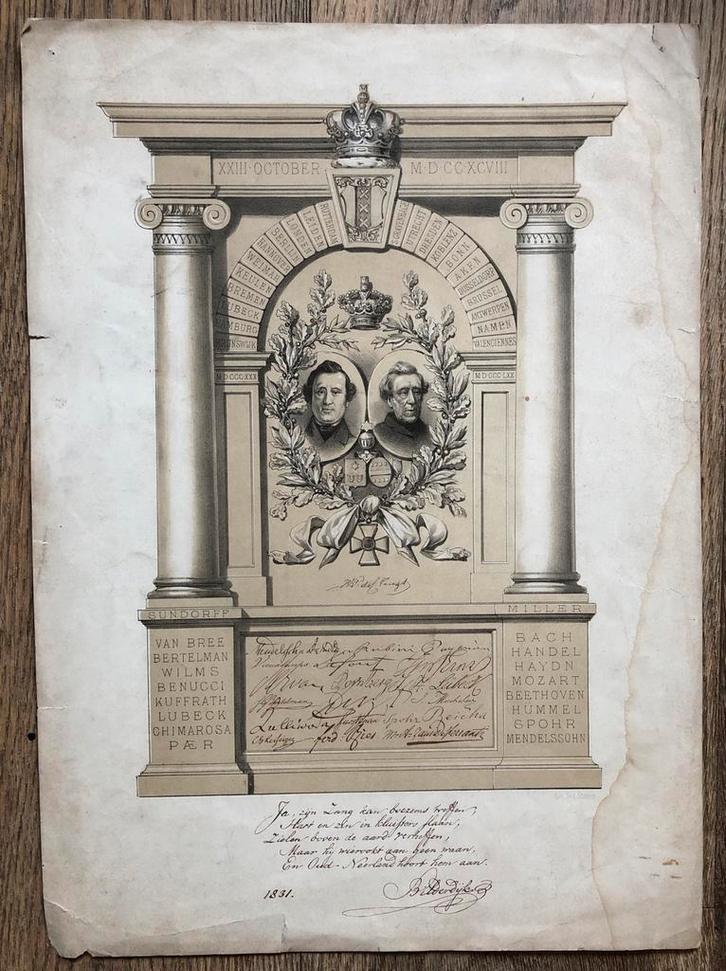 XXIII·OCTOBER M·D·CC·XCVIII
BRUNSWIJK
HAMBURG
LUBECK
BREMEN
KEULEN
WEIMAR
HANNOVER
BERLIN
LONDEN
LEIDEN
ROTTERDAM
UTRECHT
KOBLENZ
BONN
AKEN
DUSSELDORF
BRUSSEL
ANTWERPEN
NAMEN
VALENCIENNES
MDCCCXXX
MDCCCLXX
SUNDORFF
MILLER
VAN BREE
BERTELMAN
WILMS
BENUCCI
KUFFRATH
LUBECK
CHIMAROSA
PÆR
Rubini
Spohr Reicha
ferd. Ries
BACH
HANDEL
HAYDN
MOZART
BEETHOVEN
HUMMEL
SPOHR
MENDELSSOHN
Ja, zijn Zang kan boezems treffen,
Hart en zin in kluisters slaan,
Zielen boven de aard verheffen,
Maar hij wierookt aan geen waan,
En Oud-Neerland hoort hem aan.
1831. Bilderdijk